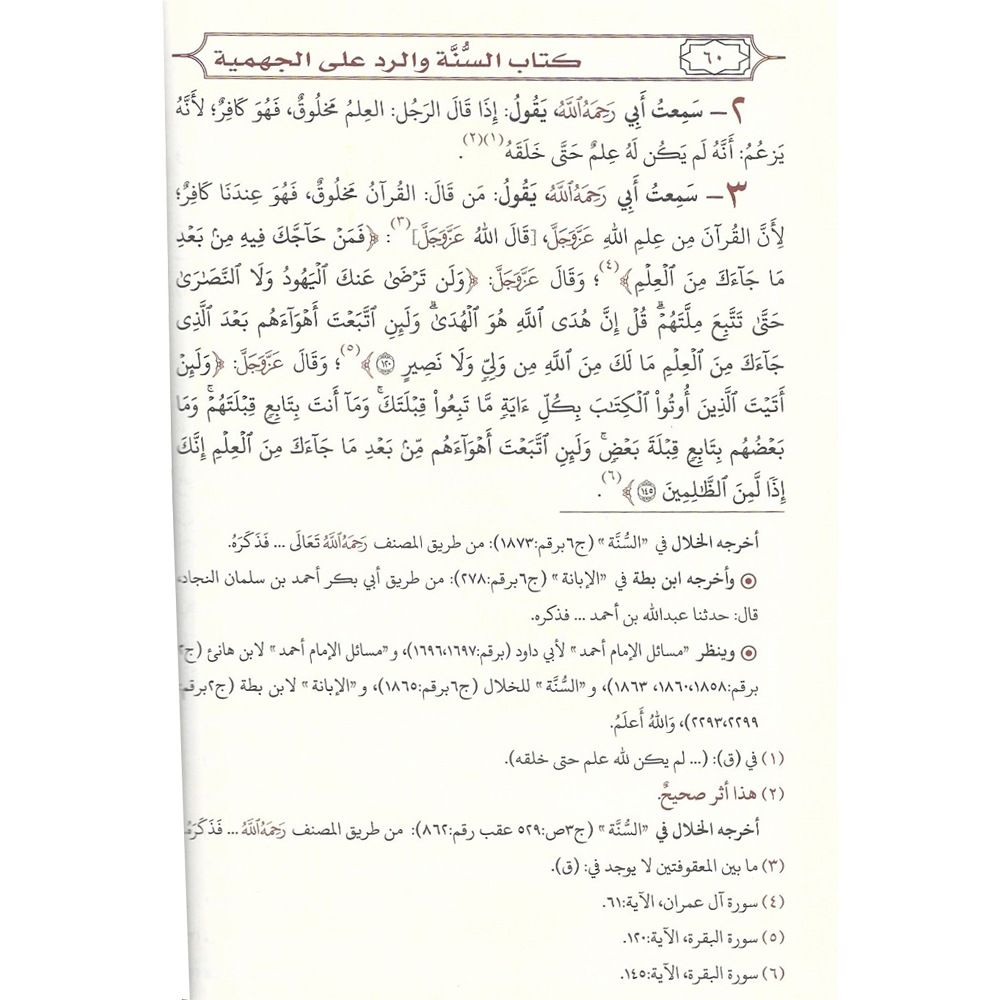 ٦٠
كتاب السُّنَّة والرد على الجهمية
٢- سَمِعتُ أَبِي رَحِمَهُ اللَّهُ، يَقُولُ: إِذَا قَالَ الرَجُل: العِلمُ مَخلُوقٌ، فَهُوَ كَافِرٌ؛ لأَنَّهُ
يَزعُمُ: أَنَّهُ لَم يَكُن لَهُ عِلمٌ حَتَّى خَلَقَهُ(١)(٢).
٣- سَمِعتُ أَبِي رَحِمَهُ اللَّهُ، يَقُولُ: مَن قَالَ: القُرآنُ مَخلُوقٌ، فَهُوَ عِندَنَا كَافِرٌ؛
لِأَنَّ القُرآنَ مِن عِلمِ اللهِ عَزَّوَجَلَّ، [قَالَ اللهُ عَزَّوَجَلَّ](٣): ﴿فَمَنْ حَآجَّكَ فِيهِ مِنۢ بَعْدِ
مَا جَآءَكَ مِنَ ٱلْعِلْمِ﴾(٤)؛ وَقَالَ عَزَّوَجَلَّ: ﴿وَلَن تَرْضَىٰ عَنكَ ٱلْيَهُودُ وَلَا ٱلنَّصَٰرَىٰ
حَتَّىٰ تَتَّبِعَ مِلَّتَهُمْ ۗ قُلْ إِنَّ هُدَى ٱللَّهِ هُوَ ٱلْهُدَىٰ ۗ وَلَئِنِ ٱتَّبَعْتَ أَهْوَآءَهُم بَعْدَ ٱلَّذِى
جَآءَكَ مِنَ ٱلْعِلْمِ مَا لَكَ مِنَ ٱللَّهِ مِن وَلِىٍّ وَلَا نَصِيرٍ ١٢٠﴾(٥)؛ وَقَالَ عَزَّوَجَلَّ: ﴿وَلَئِنْ
أَتَيْتَ ٱلَّذِينَ أُوتُوا۟ ٱلْكِتَٰبَ بِكُلِّ ءَايَةٍ مَّا تَبِعُوا۟ قِبْلَتَكَ ۚ وَمَآ أَنتَ بِتَابِعٍ قِبْلَتَهُمْ ۚ وَمَا
بَعْضُهُم بِتَابِعٍ قِبْلَةَ بَعْضٍ ۚ وَلَئِنِ ٱتَّبَعْتَ أَهْوَآءَهُم مِّنۢ بَعْدِ مَا جَآءَكَ مِنَ ٱلْعِلْمِ إِنَّكَ
إِذًا لَّمِنَ ٱلظَّٰلِمِينَ ١٤٥﴾(٦).
أخرجه الخلال في «السُّنَّة» (ج٦برقم:١٨٧٣): من طريق المصنف رَحِمَهُ اللَّهُ تَعَالَى ... فَذَكَرَهُ.
◉ وأخرجه ابن بطة في «الإبانة» (ج٦برقم:٢٧٨): من طريق أبي بكر أحمد بن سلمان النجاد،
قال: حدثنا عبدالله بن أحمد ... فذكره.
◉ وينظر «مسائل الإمام أحمد» لأبي داود (برقم:١٦٩٦،١٦٩٧)، و«مسائل الإمام أحمد» لابن هانئ (ج٢
برقم:١٨٦٠،١٨٥٨، ١٨٦٣)، و«السُّنَّة» للخلال (ج٦برقم:١٨٦٥)، و«الإبانة» لابن بطة (ج٢برقم:
٢٢٩٣،٢٢٩٩)، وَاللهُ أَعلَمُ.
(١) في (ق): (... لم يكن لله علم حتى خلقه).
(٢) هذا أثر صحيحٌ.
أخرجه الخلال في «السُّنَّة» (ج٣ص:٥٢٩ عقب رقم:٨٦٢): من طريق المصنف رَحِمَهُ اللَّهُ ... فَذَكَرَهُ.
(٣) ما بين المعقوفتين لا يوجد في: (ق).
(٤) سورة آل عمران، الآية:٦١.
(٥) سورة البقرة، الآية:١٢٠.
(٦) سورة البقرة، الآية:١٤٥.